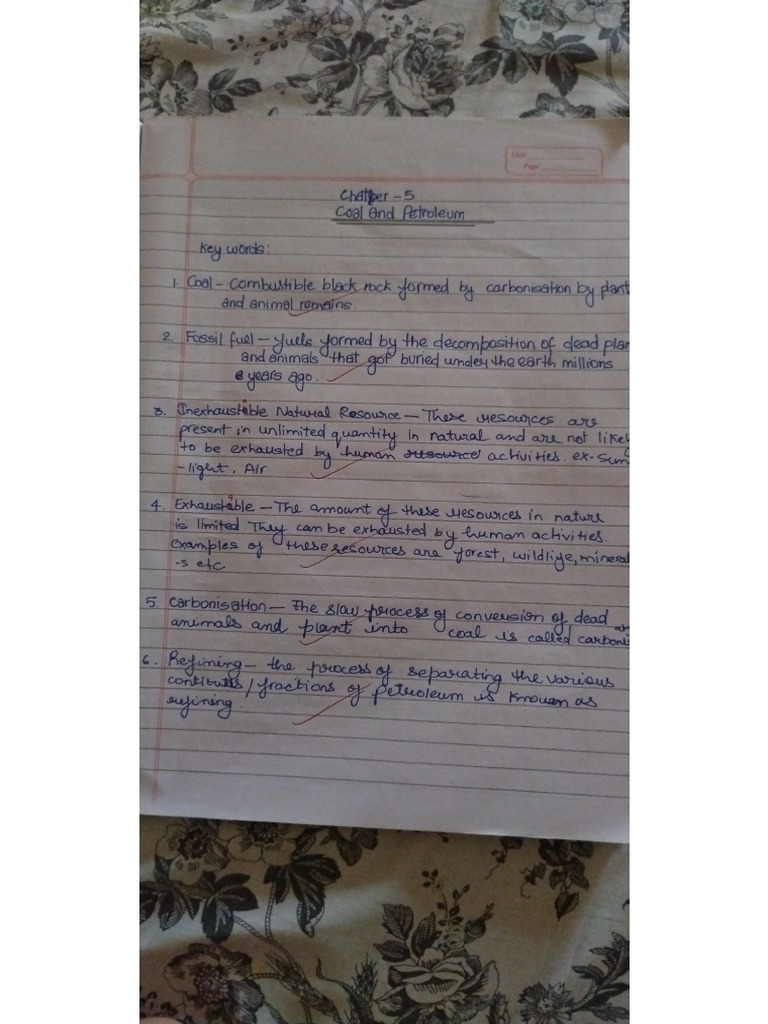 Date
Page
Chatper - 5
Coal and Petroleum
Key words:
1. Coal - Combustible black rock formed by carbonisation by plant
and animal remains.
2. Fossil fuel - fuels formed by the decomposition of dead plan
and animals that got buried under the earth millions
years ago.
3. Inexhaustible Natural Resource - These resources are
present in unlimited quantity in natural and are not likely
to be exhausted by human resource activities. ex- Sun
-light, Air
4. Exhaustible - The amount of these resources in nature
is limited They can be exhausted by human activities.
examples of these resources are forest, wildlife, mineral
-s etc
5. Carbonisation - The slow process of conversion of dead
animals and plant into coal is called carbonis
6. Refining - the process of separating the various
/fractions of petroleum is known as
refining.